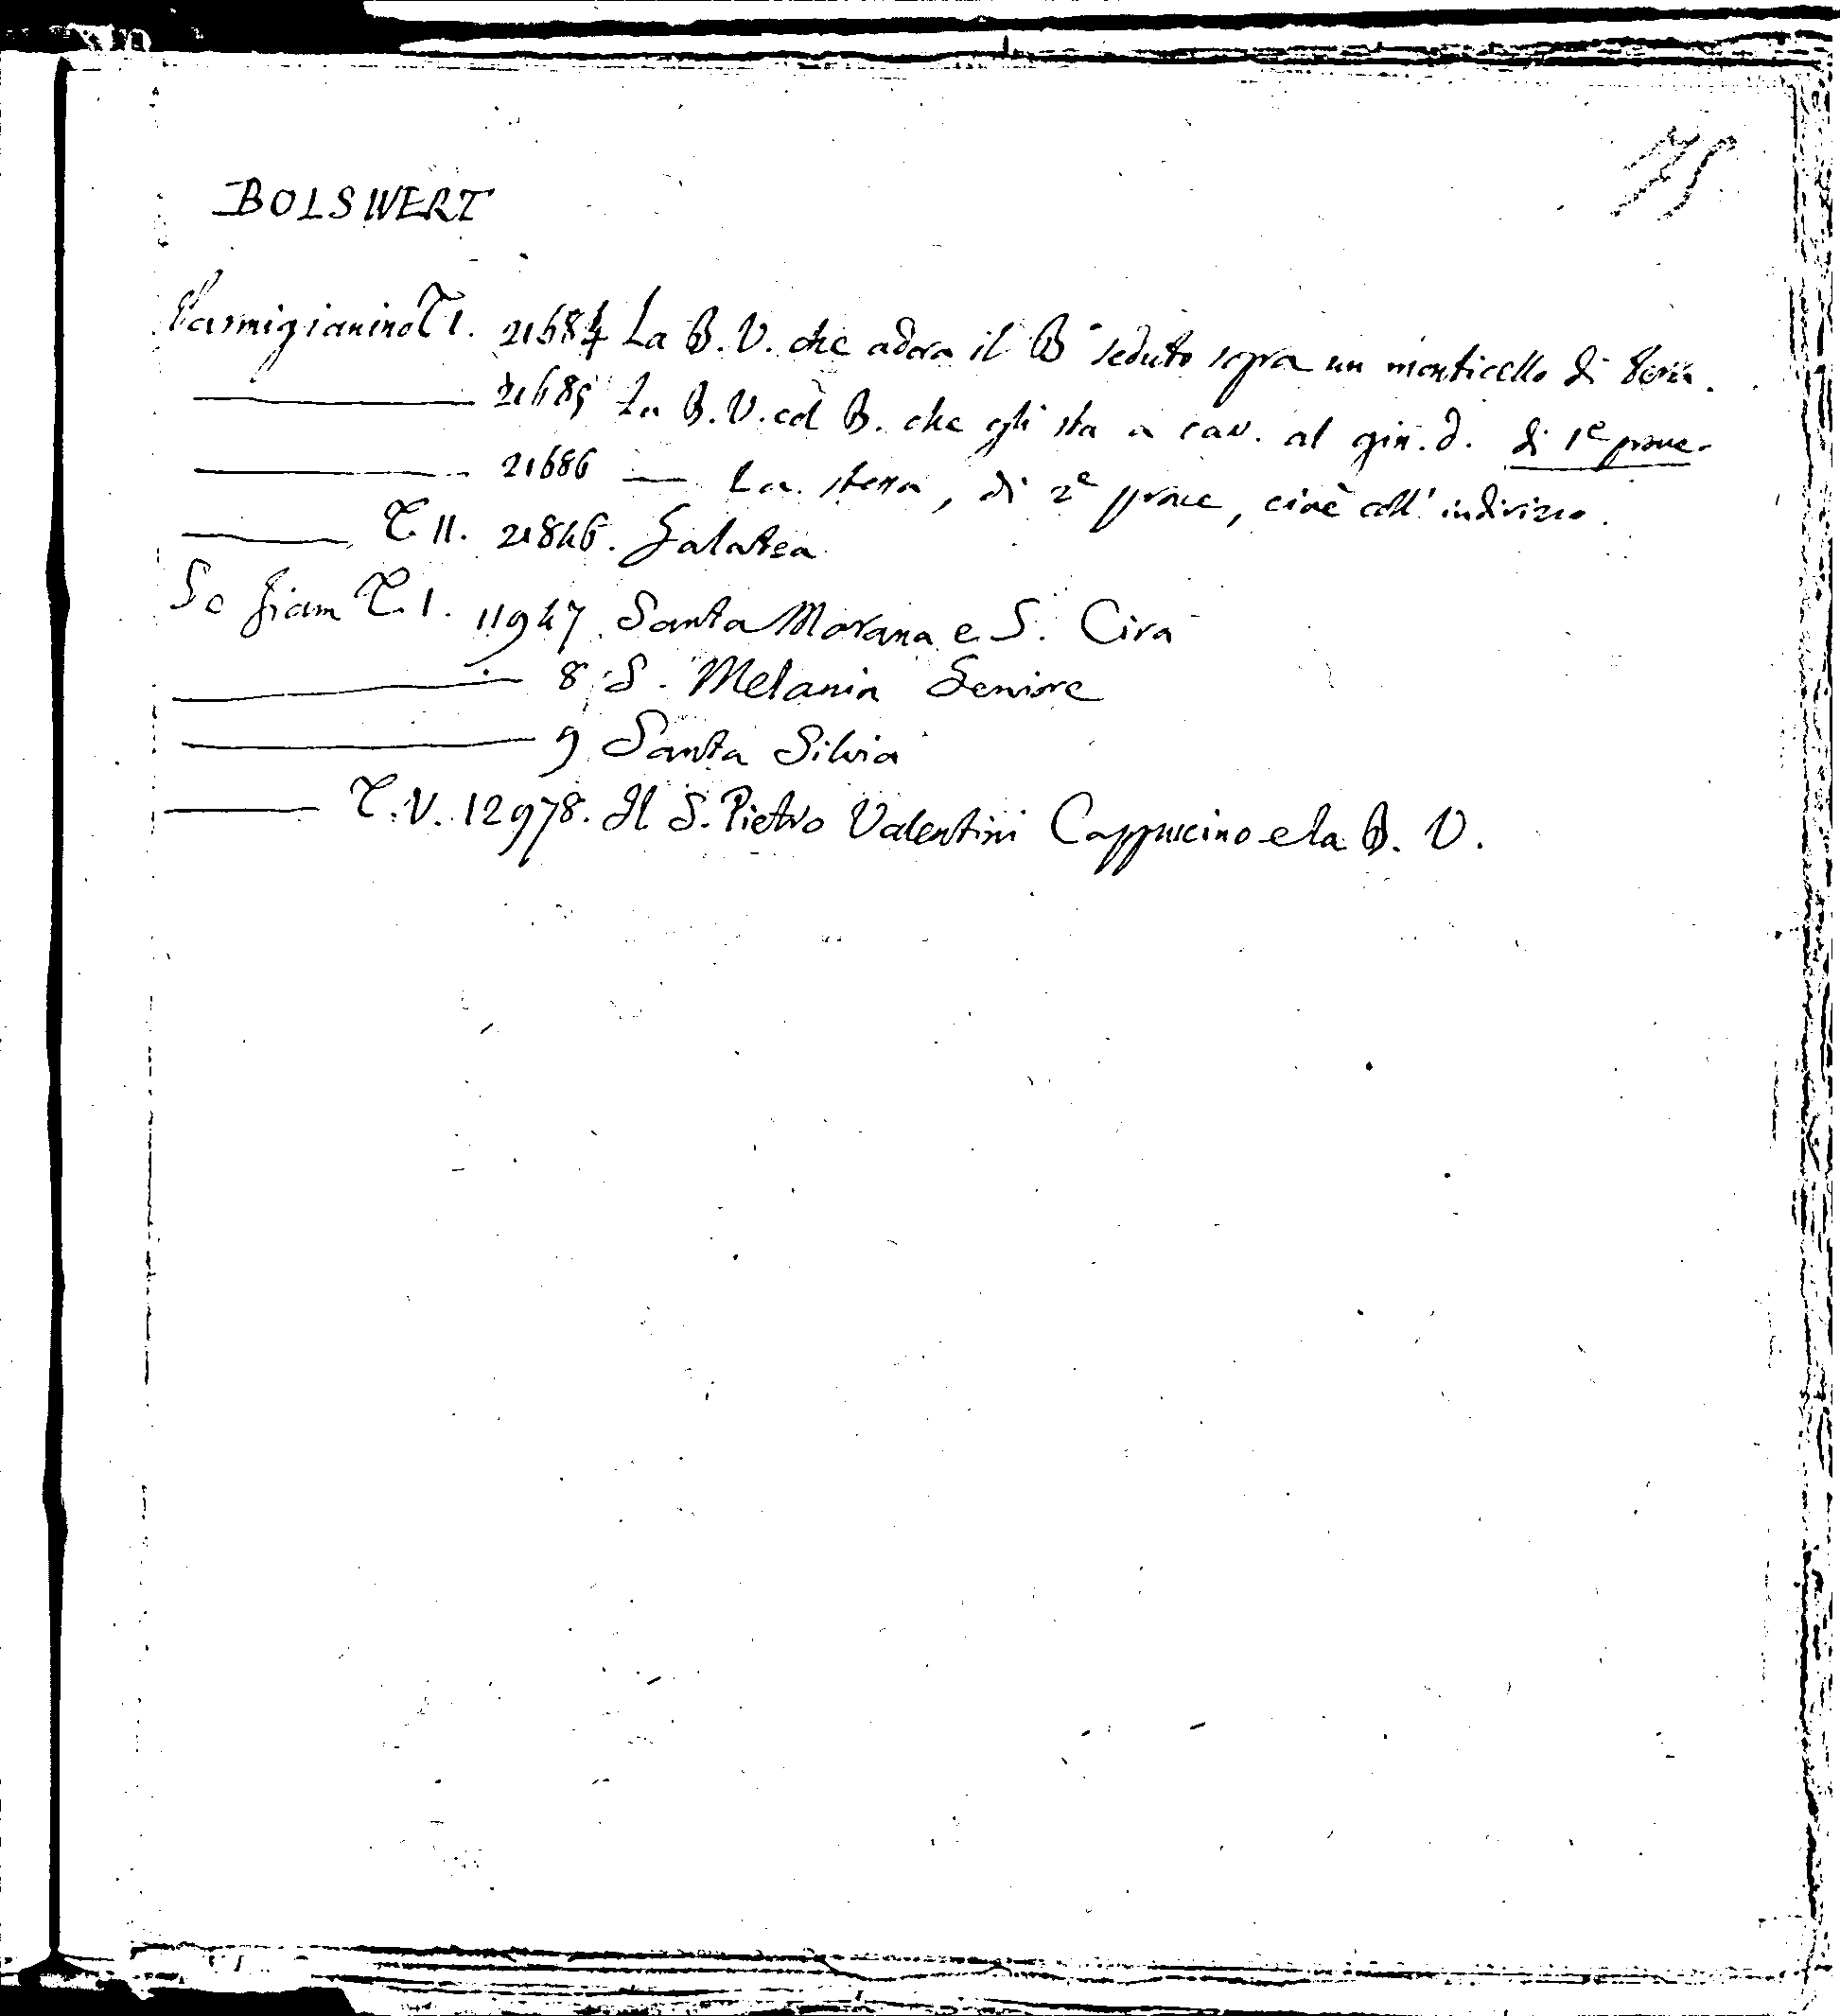 75
BOLSWERT
Parmigianino T I. 21684 La B. V. che adora il Bº seduto sopra un monticello di terra.
21685 La B. V. col B. che gli sta a cav. al gin. d. di 1e prove.
21686 — La stessa, di 2e prove, cioè coll' indirizzo.
T. II. 21846. Galatea
Sc fiam T. I. 11947 Santa Morana e S. Cira
8 S. Melania Seniore
9 Santa Silvia
T. V. 12978. Il S. Pietro Valentini Cappucino e la B. V.